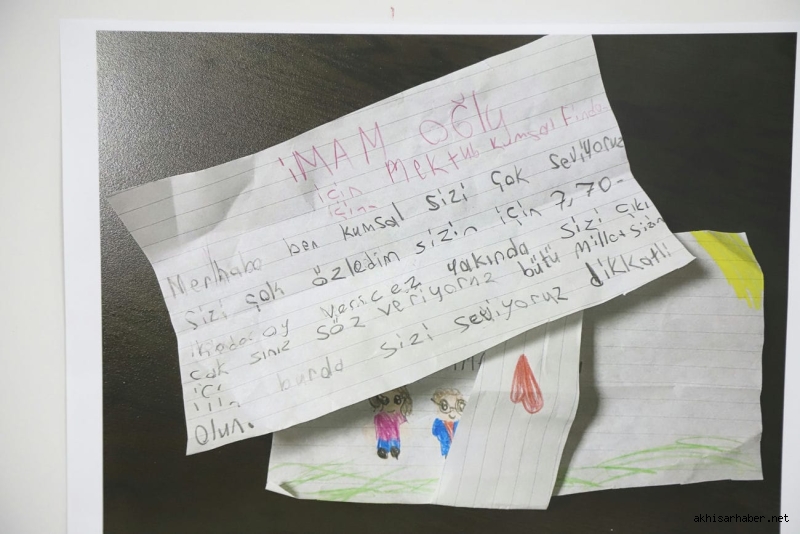 iMAM OĞLU
için Mektub Kumsal Fında
içinn
Merhaba ben Kumsal sizi çok seviyoruz
sizi çok özledim sizin için 7,70-
oy vericez yakında sizi çıkı
cak sınız söz veriyoruz bütü millet sizin
içi
için burda sizi seviyoruz dikkatli
olun.
akhisarhaber.net